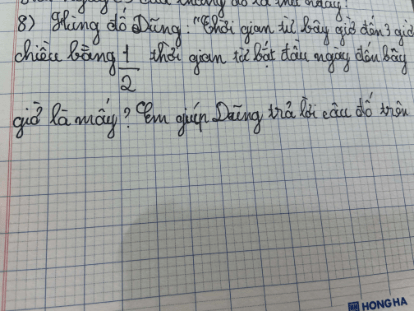 8) Hùng đố Dũng: "Thời gian từ bây giờ đến 3 giờ
chiều bằng 1/2 thời gian từ bắt đầu ngày đến bây
giờ là mấy? Em giúp Dũng trả lời câu đố trên
HONG HA